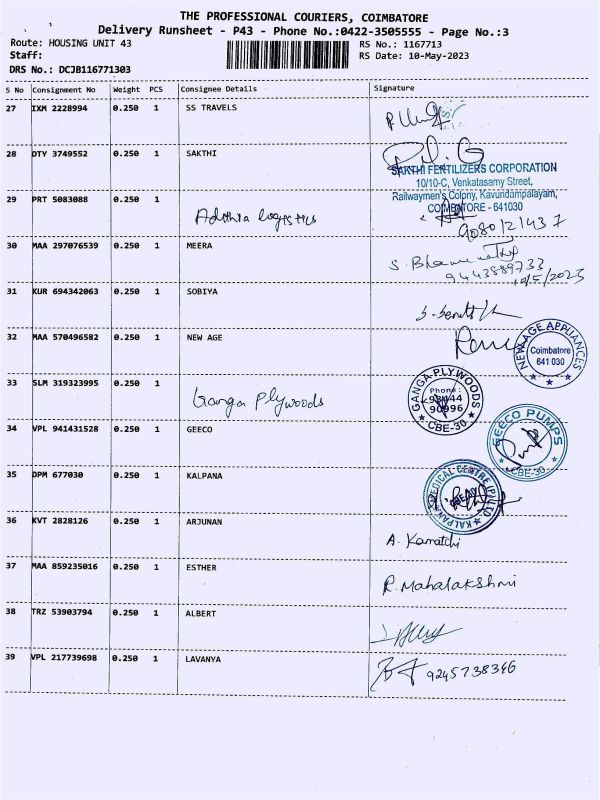 THE PROFESSIONAL COURIERS, COIMBATORE
Delivery Runsheet - P43 - Phone No.:0422-3505555 - Page No.:3
Route: HOUSING UNIT 43 RS No.: 1167713
Staff: RS Date: 10-May-2023
DRS No.: DCJB116771303
S No Consignment No Weight PCS Consignee Details Signature
27 IXM 2228994 0.250 1 SS TRAVELS
28 DTY 3749552 0.250 1 SAKTHI
SAKTHI FERTILIZERS CORPORATION
10/10-C, Venkatasamy Street,
Railwaymen's Colony, Kavundampalayam,
COIMBATORE - 641030
29 PRT 5083088 0.250 1
Adithia logistics
9080121437
30 MAA 297076539 0.250 1 MEERA
9443889733
10/5/2023
31 KUR 694342063 0.250 1 SOBIYA
32 MAA 570496582 0.250 1 NEW AGE
NEW AGE APPLIANCES
Coimbatore
641 030
33 SLM 319323995 0.250 1
Ganga Plywoods
GANGA PLYWOODS
Phone:
90996
CBE-30
34 VPL 941431528 0.250 1 GEECO
GEECO PUMPS
CBE-30
35 DPM 677030 0.250 1 KALPANA
KALPANA MEDICAL CENTRE (P) LTD
36 KVT 2828126 0.250 1 ARJUNAN
A. Kamatchi
37 MAA 859235016 0.250 1 ESTHER
R. Mahalakshmi
38 TRZ 53903794 0.250 1 ALBERT
39 VPL 217739698 0.250 1 LAVANYA
9245738346